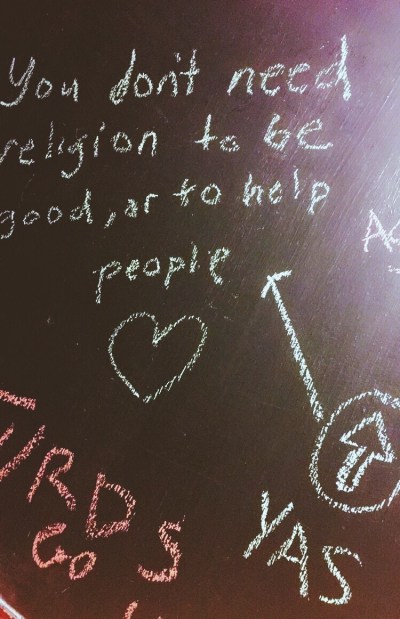 You don't need
religion to be
good, or to help
people
YAS
GO